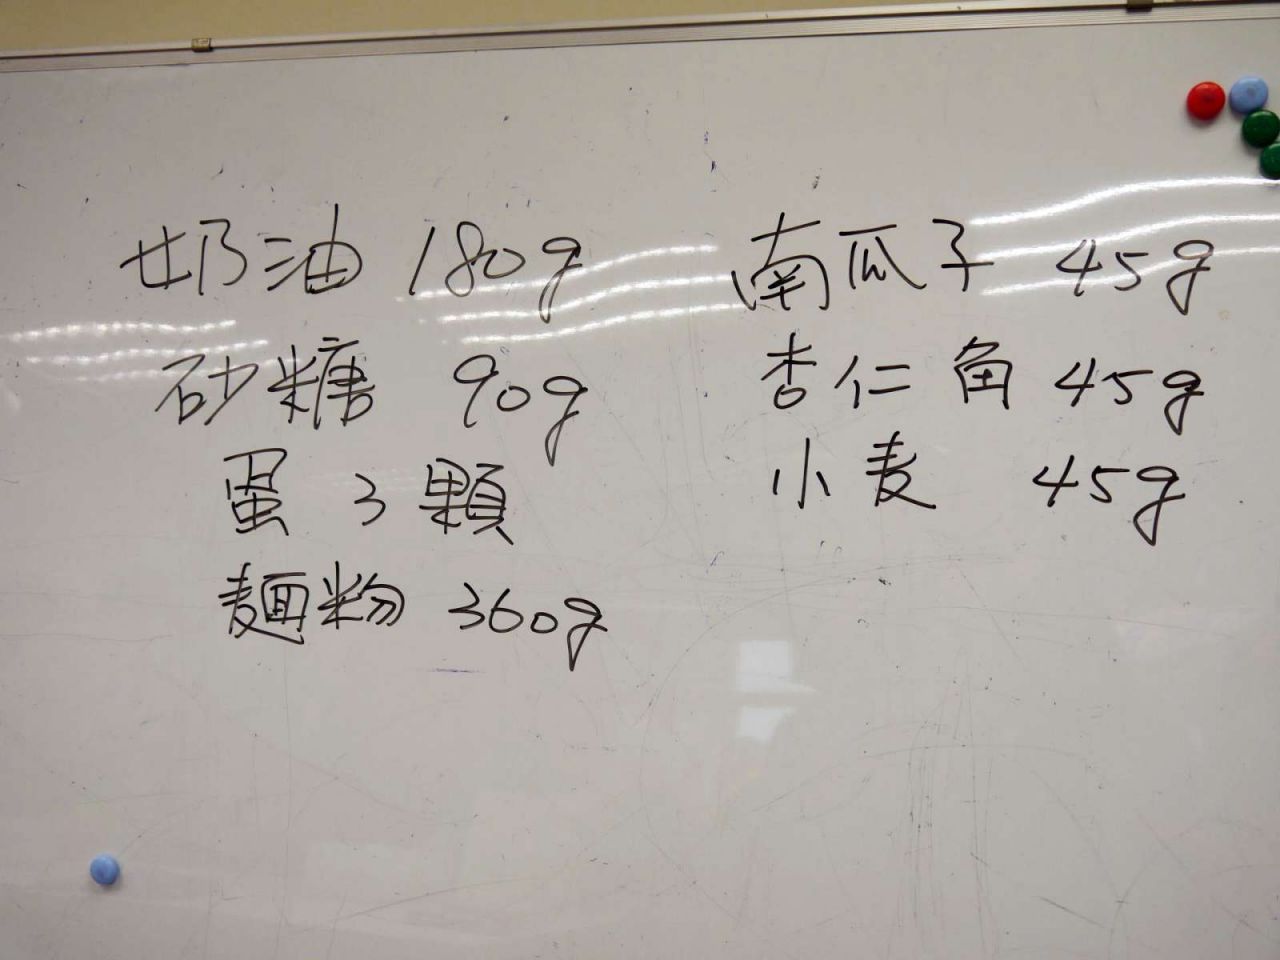 奶油 180g
砂糖 90g
蛋 3顆
麵粉 360g
南瓜子 45g
杏仁角 45g
小麦 45g